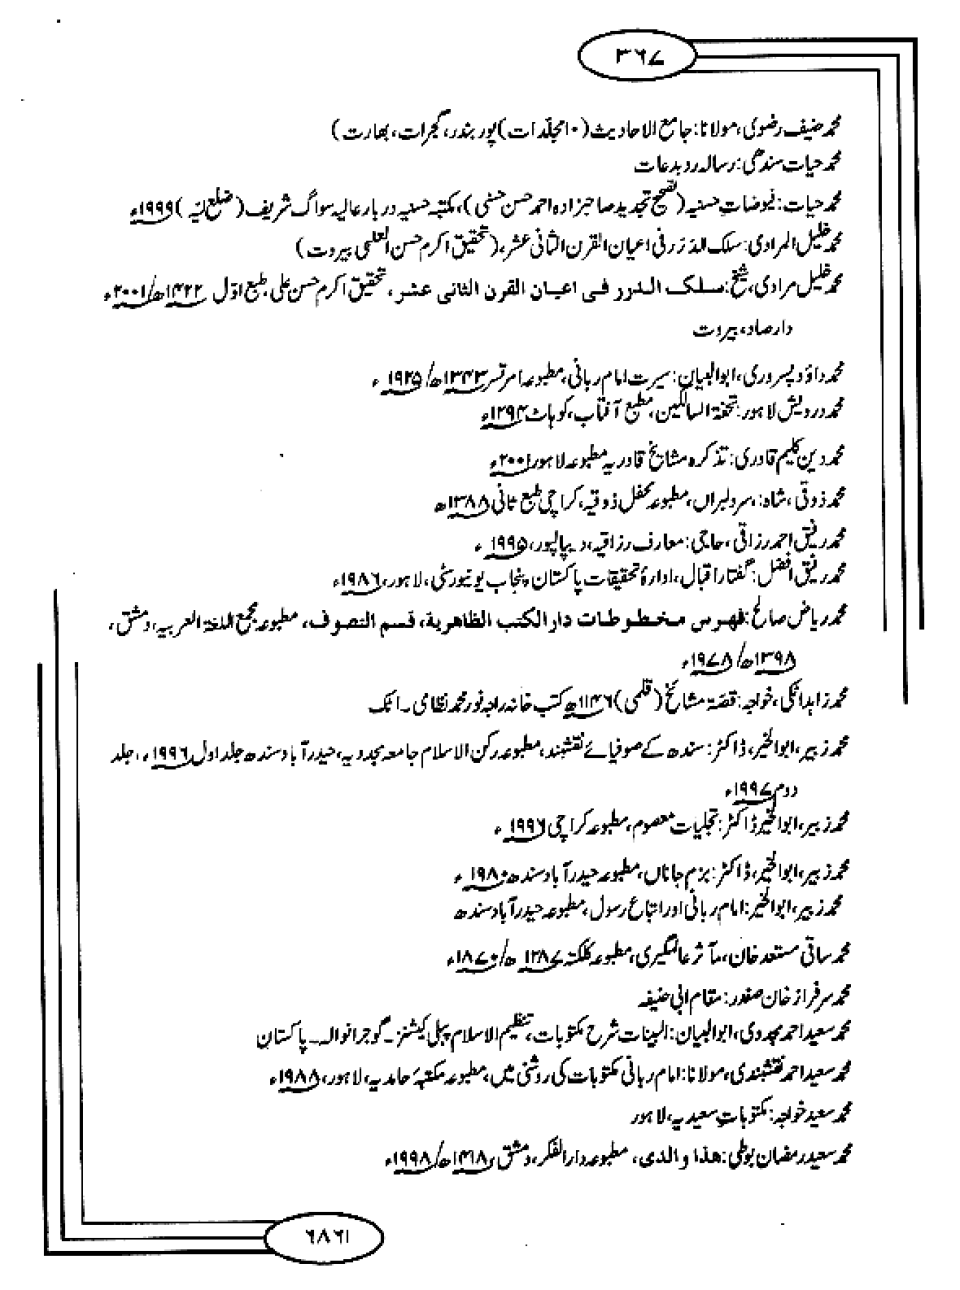 ۳۶۷
محمد حنیف رضوی، مولانا: جامع الاحادیث (۱۰مجلدات) پور بندر، گجرات، بھارت)
محمد حیات سندھی: رسالہ رد بدعات
محمد حیات: فیوضات حسنیہ (تصحیح تجدید صاحبزادہ احمد حسن حسنی)، مکتبہ حسنیہ دربار عالیہ سواگ شریف (ضلع لیہ) ۱۹۹۹ء
محمد خلیل المرادی: سلک الدرر فی اعیان القرن الثانی عشر، (تحقیق اکرم حسن العلمی بیروت)
محمد خلیل مرادی، شیخ: سلک الدرر فی اعیان القرن الثانی عشر، تحقیق اکرم حسن علی، طبع اوّل ۱۴۲۲ھ/۲۰۰۱ء
دار صاد، بیروت
محمد داؤد پسروری، ابوالبیان: سیرت امام ربانی، مطبوعہ امرتسر ۱۳۴۳ھ/۱۹۲۵ء
محمد درویش لاہور: تحفۃ السالکین، مطبع آفتاب، کوہاٹ ۱۲۹۴ء
محمد دین کلیم قادری: تذکرہ مشایخ قادریہ مطبوعہ لاہور ۲۰۰۱ء
محمد ذوقی، شاہ: سر دلبراں، مطبوعہ محفل ذوقیہ، کراچی طبع ثانی ۱۳۸۸ھ
محمد رفیق احمد رزاقی، حاجی: معارف رزاقیہ، دیپالپور، ۱۹۹۵ء
محمد رفیق افضل: گفتار اقبال، ادارۂ تحقیقات پاکستان پنجاب یونیورسٹی، لاہور، ۱۹۸۶ء
محمد ریاض صالح: فهرس مخطوطات دار الكتب الظاهرية، قسم التصوف، مطبوعہ مجمع اللغۃ العربیہ، دمشق،
۱۳۹۸ھ/۱۹۷۸ء
محمد زاہد اٹکی، خواجہ: قصّۃ مشائخ (قلمی) ۱۱۴۶ھ کتب خانہ راجہ نور محمد نظامی۔ اٹک
محمد زبیر، ابوالخیر، ڈاکٹر: سندھ کے صوفیائے نقشبند، مطبوعہ رکن الاسلام جامعہ مجددیہ، حیدرآباد سندھ جلد اول ۱۹۹۶ء، جلد
دوم ۱۹۹۷ء
محمد زبیر، ابوالخیر ڈاکٹر: تجلیات معصوم، مطبوعہ کراچی ۱۹۹۶ء
محمد زبیر، ابوالخیر، ڈاکٹر: بزم جاناں، مطبوعہ حیدرآباد سندھ ۱۹۸۰ء
محمد زبیر، ابوالخیر: امام ربانی اور اتباع رسول، مطبوعہ حیدرآباد سندھ
محمد ساقی مستعد خان، مآثر عالمگیری، مطبوعہ کلکتہ ۱۲۸۷ھ/۱۸۷۰ء
محمد سرفراز خان صفدر: مقام ابی حنیفہ
محمد سعید احمد مجددی، ابوالبیان: البینات شرح مکتوبات، تنظیم الاسلام پبلی کیشنز۔ گوجرانوالہ۔ پاکستان
محمد سعید احمد نقشبندی، مولانا: امام ربانی مکتوبات کی روشنی میں، مطبوعہ مکتبۂ حامدیہ، لاہور، ۱۹۸۸ء
محمد سعید خواجہ: مکتوبات سعیدیہ، لاہور
محمد سعید رمضان بوطی: هذا والدی، مطبوعہ دارالفکر، دمشق ۱۴۱۸ھ/۱۹۹۸ء
۶۸۶۱